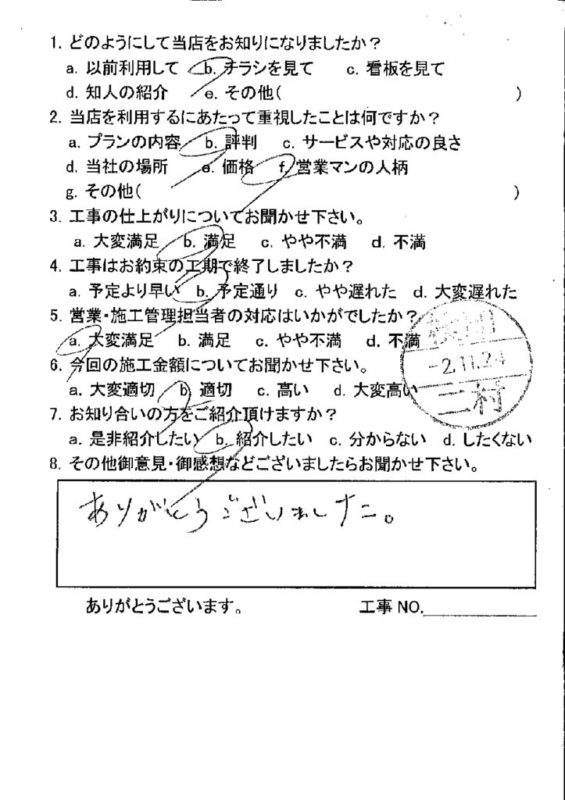 1. どのようにして当店をお知りになりましたか？
a. 以前利用して b. チラシを見て c. 看板を見て
d. 知人の紹介 e. その他( )
2. 当店を利用するにあたって重視したことは何ですか？
a. プランの内容 b. 評判 c. サービスや対応の良さ
d. 当社の場所 e. 価格 f. 営業マンの人柄
g. その他( )
3. 工事の仕上がりについてお聞かせ下さい。
a. 大変満足 b. 満足 c. やや不満 d. 不満
4. 工事はお約束の工期で終了しましたか？
a. 予定より早い b. 予定通り c. やや遅れた d. 大変遅れた
5. 営業・施工管理担当者の対応はいかがでしたか？
a. 大変満足 b. 満足 c. やや不満 d. 不満
6. 今回の施工金額についてお聞かせ下さい。
a. 大変適切 b. 適切 c. 高い d. 大変高い
-2.11.24
二村
7. お知り合いの方をご紹介頂けますか？
a. 是非紹介したい b. 紹介したい c. 分からない d. したくない
8. その他御意見・御感想などございましたらお聞かせ下さい。
ありがとうございました。
ありがとうございます。 工事 NO.